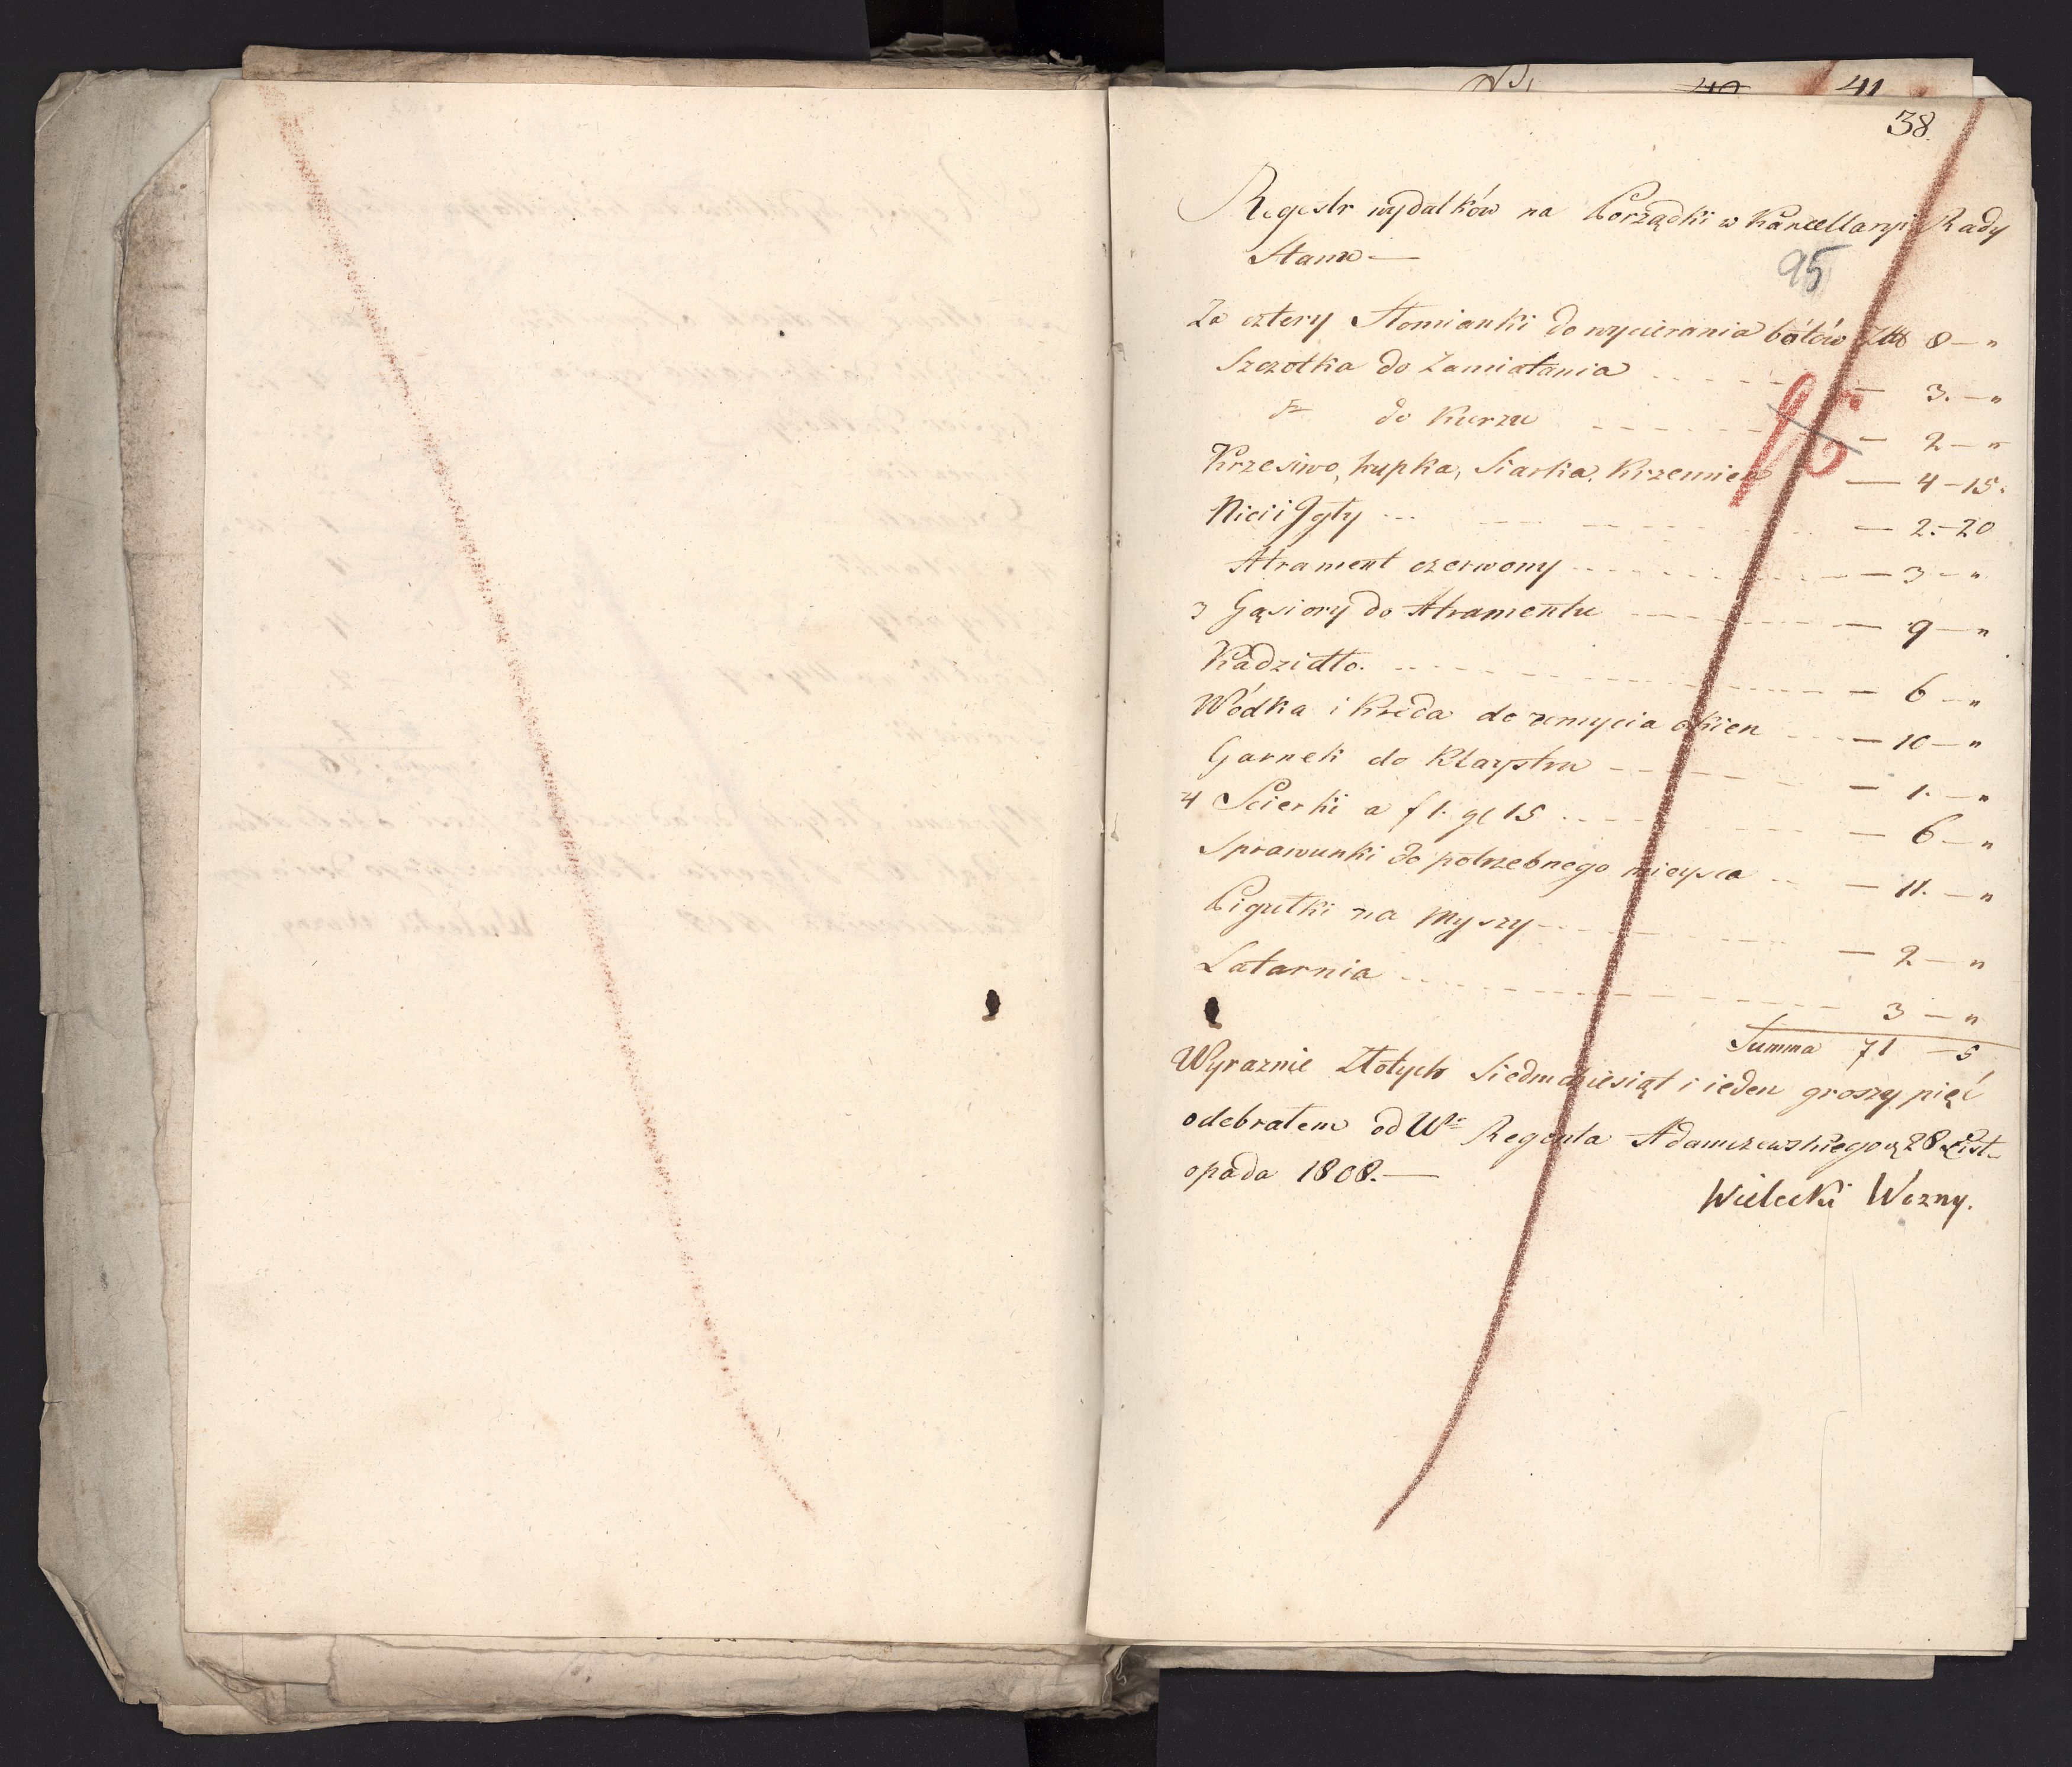 41
38.
Regestr wydatków na Porządki w Kancellaryi Rady
Stanu —
95
Za cztery Słomianki do wycierania bótów Złł 8 — "
Szczotka do Zamiatania — 3. — "
do Kurzu — 2 — "
Krzesiwo, hupka, Siarka, Krzemień — 4 — 15.
Nici i Jgły — 2. — 20
Atrament czerwony — 3 — "
3 Gąsiory do Atramentu — 9 — "
Kadzidło. — 6 — "
Wódka i Kreda do umycia okien — 10 — "
Garnek do Klaystru — 1. — "
4 Scierki a f 1. gl 15 — 6 — "
Sprawunki do potrzebnego mieysca — 11. — "
Pigułki na Myszy — 2 — "
Latarnia — 3 — "
Summa 71 — 5
Wyraznie Złotych Siedmdziesiąt i ieden groszy pięć
odebrałem od Wo Regenta Adamczewskiego d 28 List-
opada 1808. —
Wielecki Wozny.